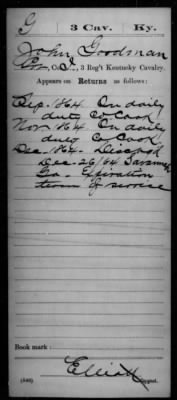 G | 3 Cav. | Ky.
John Goodman
Co. I, 3 Reg't Kentucky Cavalry.
Appears on Returns as follows:
Sep. 1864. On daily
duty Co Cook
Nov 1864 On daily
duty Co Cook
Dec. 1864. Disc'd
Dec. 26/64 Savannah
Ga. Expiration
term of service
Book mark:
Elliott
(546) Copyist.